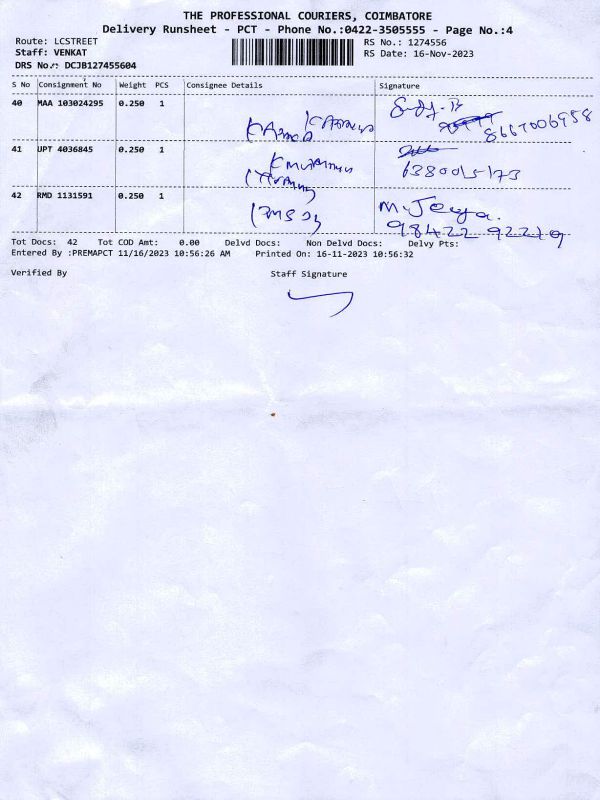 THE PROFESSIONAL COURIERS, COIMBATORE
Delivery Runsheet - PCT - Phone No.:0422-3505555 - Page No.:4
Route: LCSTREET
RS No.: 1274556
Staff: VENKAT
RS Date: 16-Nov-2023
DRS No.: DCJB127455604
S No Consignment No Weight PCS Consignee Details Signature
40 MAA 103024295 0.250 1
8667006958
41 UPT 4036845 0.250 1
6380015173
42 RMD 1131591 0.250 1 M. Jeya.
98422 92219
Tot Docs: 42 Tot COD Amt: 0.00 Delvd Docs: Non Delvd Docs: Delvy Pts:
Entered By :PREMAPCT 11/16/2023 10:56:26 AM Printed On: 16-11-2023 10:56:32
Verified By Staff Signature